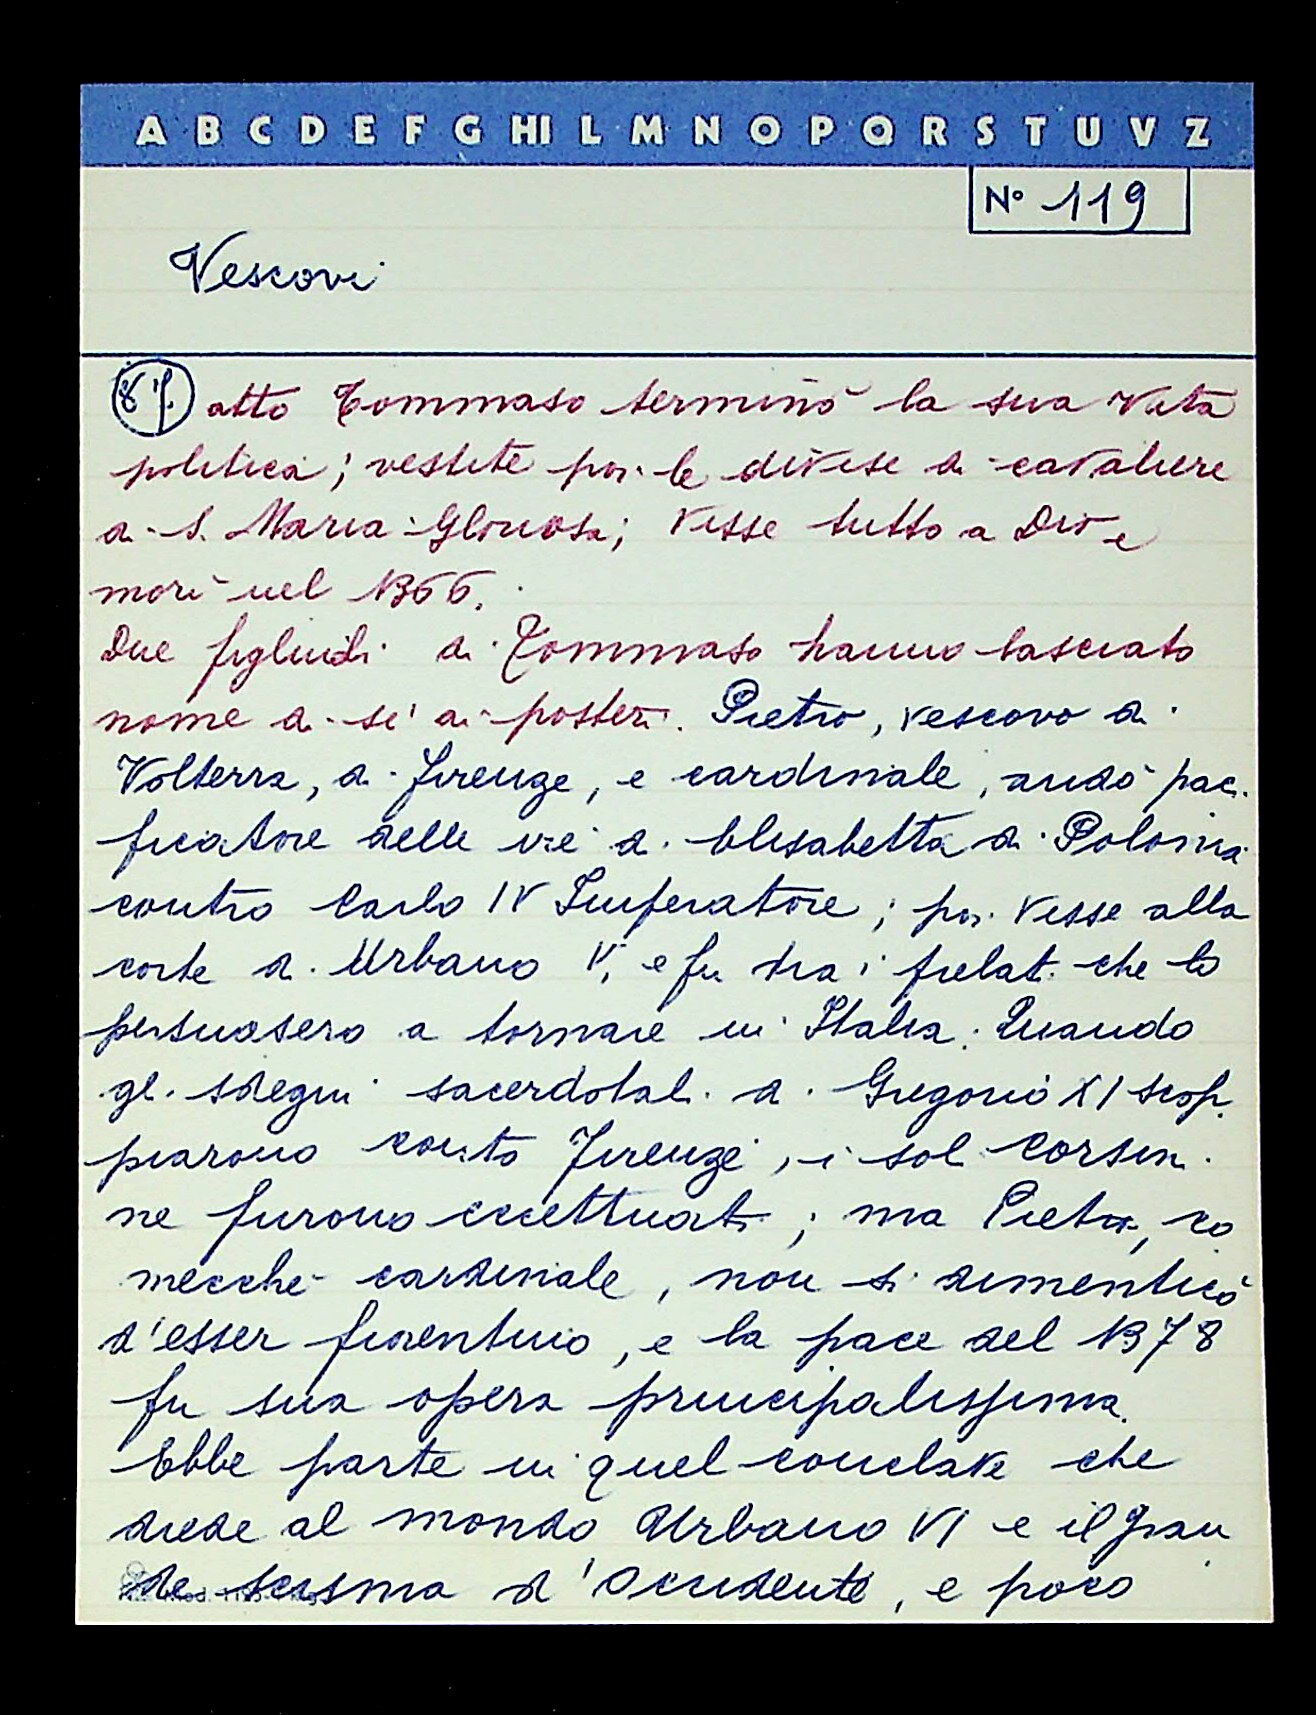 A B C D E F G HI L M N O P Q R S T U V Z
N° 119
Vescovi
8°f. atto Tommaso terminò la sua vita
politica; vestite poi le divise di cavaliere
di S. Maria Gloriosa; visse tutto a Dio e
morì nel 1366.
Due figliuoli di Tommaso hanno lasciato
nome di sé ai posteri. Pietro, vescovo di
Volterra, di Firenze, e cardinale, andò paci
ficatore delle ire di Elisabetta di Polonia
contro Carlo IV Imperatore; poi visse alla
corte di Urbano V, e fu tra i prelati che lo
persuasero a tornare in Italia. Quando
gli sdegni sacerdotali di Gregorio XI scop
piarono contro Firenze, i soli Corsini
ne furono eccettuati; ma Pietro, co
mecché cardinale, non si dimenticò
d'esser fiorentino, e la pace del 1378
fu sua opera principalissima.
Ebbe parte in quel conclave che
diede al mondo Urbano VI e il gran
de scisma d'Occidente, e poco